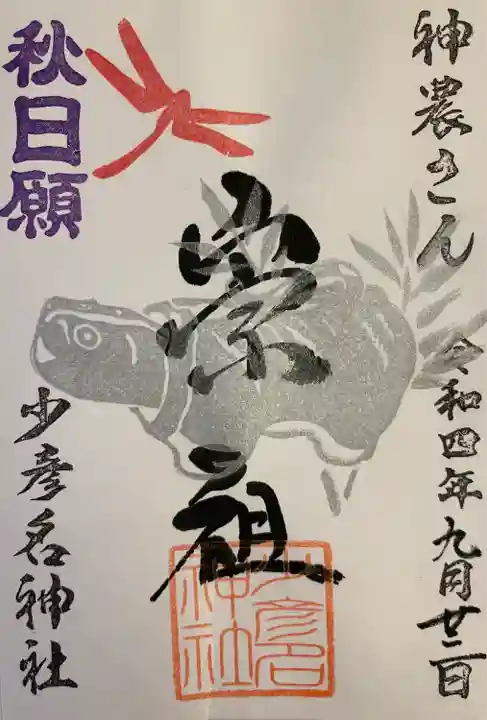 神農さん
令和四年九月廿二日
崇祖
少彦名神社
秋日願
少彦名神社